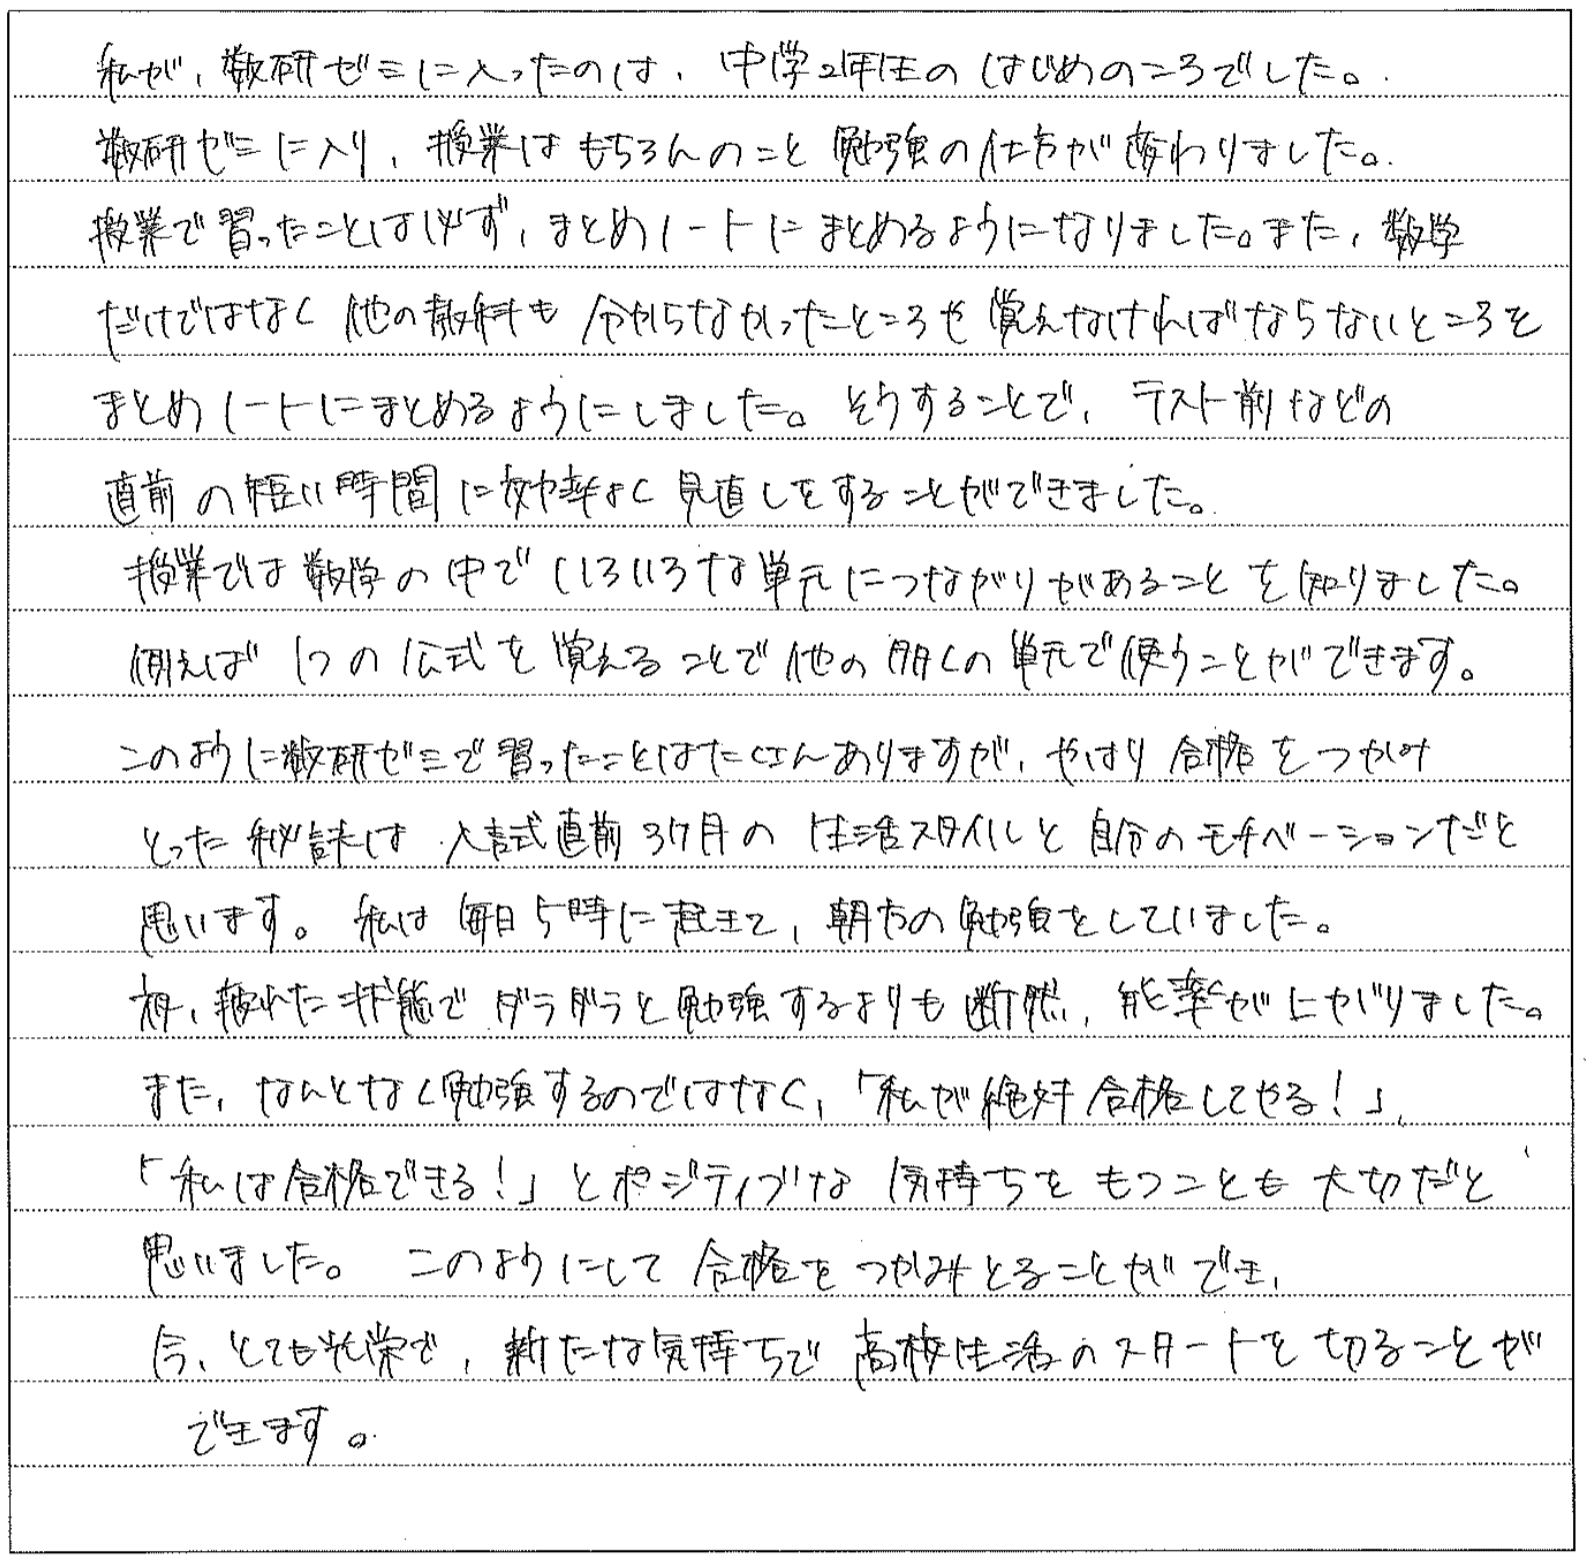 私が、数研ゼミに入ったのは、中学2年生のはじめのころでした。
数研ゼミに入り、授業はもちろんのこと勉強の仕方が変わりました。
授業で習ったことは必ず、まとめノートにまとめるようになりました。また、数学
だけではなく他の教科も分からなかったところや覚えなければならないところを
まとめノートにまとめるようにしました。そうすることで、テスト前などの
直前の短い時間に効率よく見直しをすることができました。
授業では数学の中でいろいろな単元につながりがあることを知りました。
例えば1つの公式を覚えることで他の多くの単元で使うことができます。
このように数研ゼミで習ったことはたくさんありますが、やはり合格をつかみ
とった秘訣は入試直前3ヶ月の生活スタイルと自分のモチベーションだと
思います。私は毎日5時に起きて、朝方の勉強をしていました。
夜、疲れた状態でダラダラと勉強するよりも断然、能率が上がりました。
また、なんとなく勉強するのではなく、「私が絶対合格してやる！」、
「私は合格できる！」とポジティブな気持ちをもつことも大切だと
思いました。このようにして合格をつかみとることができ、
今、とても光栄で、新たな気持ちで高校生活のスタートを切ることが
できます。